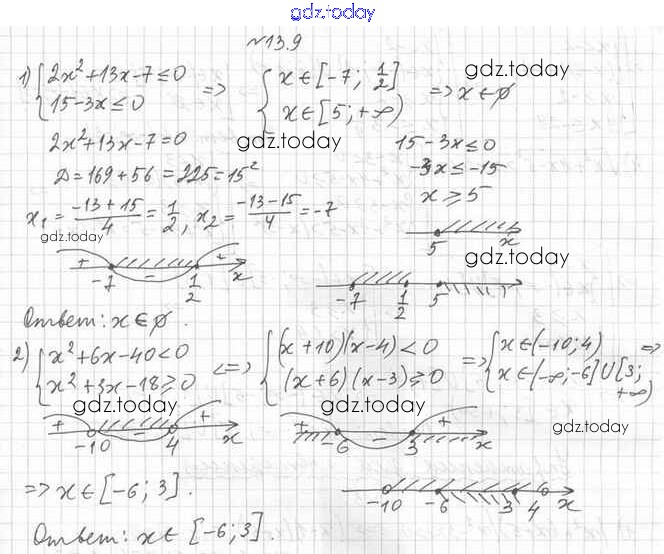 gdz.today
№13.9
1) { 2x² + 13x - 7 ≤ 0 => { x ∈ [-7; 1/2] => x ∈ ∅
15 - 3x ≤ 0 x ∈ [5; +∞)
gdz.today
2x² + 13x - 7 = 0
gdz.today
15 - 3x ≤ 0
D = 169 + 56 = 225 = 15²
-3x ≤ -15
x₁ = (-13 + 15)/4 = 1/2, x₂ = (-13 - 15)/4 = -7
x ≥ 5
gdz.today
5 x
gdz.today
+ - +
-7 1/2 x
-7 1/2 5
Ответ: x ∈ ∅.
2) { x² + 6x - 40 < 0 <=> { (x + 10)(x - 4) < 0 => { x ∈ (-10; 4) =>
x² + 3x - 18 ≥ 0 (x + 6)(x - 3) ≥ 0 x ∈ (-∞; -6] ∪ [3; +∞)
gdz.today
gdz.today
gdz.today
+ - +
-10 4 x
+ - +
-6 3 x
=> x ∈ [-6; 3].
-10 -6 3 4 x
Ответ: x ∈ [-6; 3].